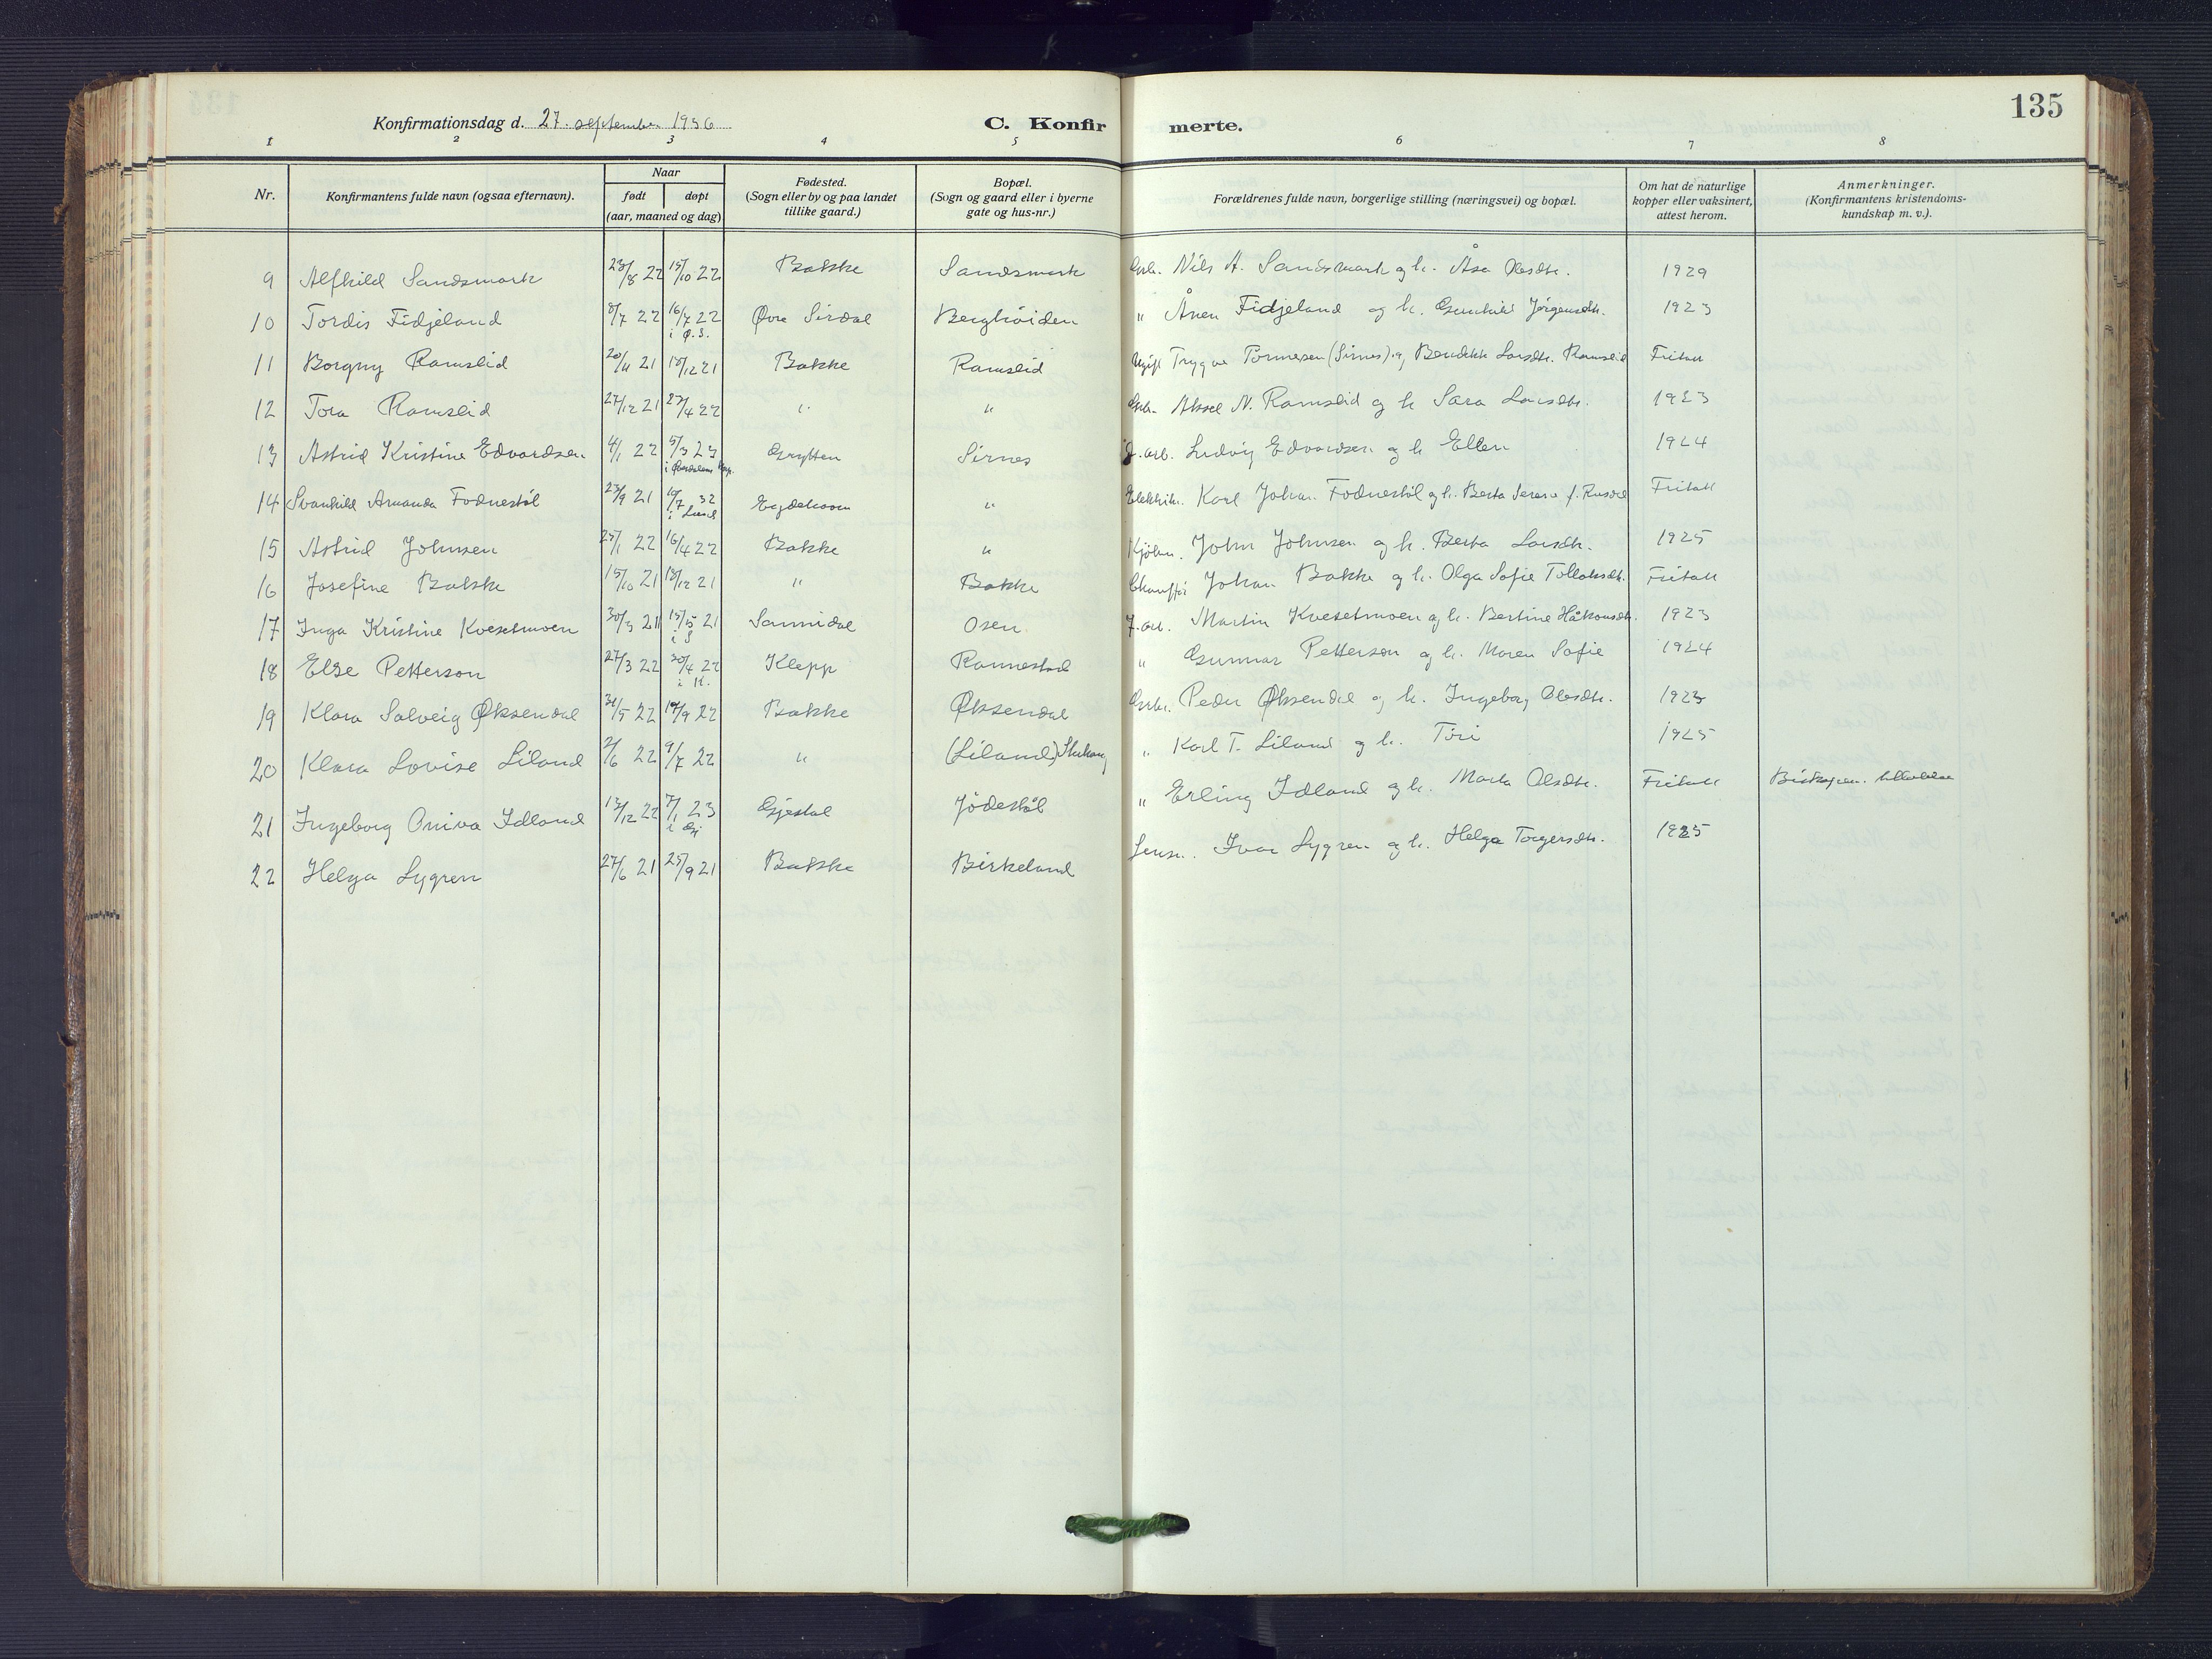 135
Konfirmationsdag d. 27. september 1936
C. Konfirmerte.
1 2 3 4 5 6 7 8
Nr. Konfirmantens fulde navn (ogsaa efternavn). Naar født døpt (aar, maaned og dag) Fødested. (Sogn eller by og paa landet tillike gaard.) Bopæl. (Sogn og gaard eller i byerne gate og hus-nr.) Forældrenes fulde navn, borgerlige stilling (næringsvei) og bopæl. Om hat de naturlige kopper eller vaksinert, attest herom. Anmerkninger. (Konfirmantens kristendomskundskap m. v.).
9 Alfhild Sandsmark 23/8 22 15/10 22 Bakke Sandsmark Grbr. Nils A. Sandsmark og h. Åsa Olsdtr. 1929
10 Tordis Fidjeland 8/7 22 16/7 22 i Ø.S. Øvre Sirdal Berghöiden " Ånen Fidjeland og h. Gunhild Jörgensdtr. 1923
11 Borgny Ramsleid 20/11 21 18/12 21 Bakke Ramsleid Ugift Trygve Tönnesen (Sirnes) og Bendikte Larsdtr. Ramsleid Fritatt
12 Tora Ramsleid 27/12 21 23/4 22 " " Grbr. Aksel N. Ramsleid og h Sara Larsdtr. 1923
13 Astrid Kristine Edvardsen 4/1 22 5/3 23 i Grytten Sirnes J.arb. Ludvig Edvardsen og h Ellen 1924
14 Svanhild Amanda Fodnestöl 23/9 21 10/7 32 i Lund Egdehavn " Elektrik. Karl Johan Fodnestöl og h. Berta Serena f. Rusdal Fritatt
15 Astrid Johnsen 25/1 22 16/4 22 Bakke " Kjöbm. John Johnsen og h. Berta Larsdtr. 1925
16 Josefine Bakke 15/10 21 18/12 21 " Bakke Chaufför Johan Bakke og h. Olga Sofie Tollaksdtr. Fritatt
17 Inga Kristine Kvesetmoen 30/3 21 15/5 21 i S Sannidal Osen J.arb. Martin Kvesetmoen og h. Bertine Håkonsdtr. 1923
18 Else Petterson 27/3 22 30/4 22 i K. Klepp Rannestad " Gunnar Petterson og h. Maren Sofie 1924
19 Klara Solveig Øksendal 31/5 22 17/9 22 Bakke Øksendal Grbr. Peder Øksendal og h. Ingeborg Olsdtr. 1923
20 Klara Lovise Liland 2/6 22 9/7 22 " (Liland) " Karl T. Liland og h. Tiri 1925
21 Ingeborg Oniva Idland 13/12 22 7/1 23 i Gj Gjestal Jödestöl " Erling Idland og h. Marta Olsdtr. Fritatt Biskopens tillatelse
22 Helga Lygren 27/6 21 25/9 21 Bakke Birkeland Lensm. Ivar Lygren og h. Helga Torgersdtr. 1925